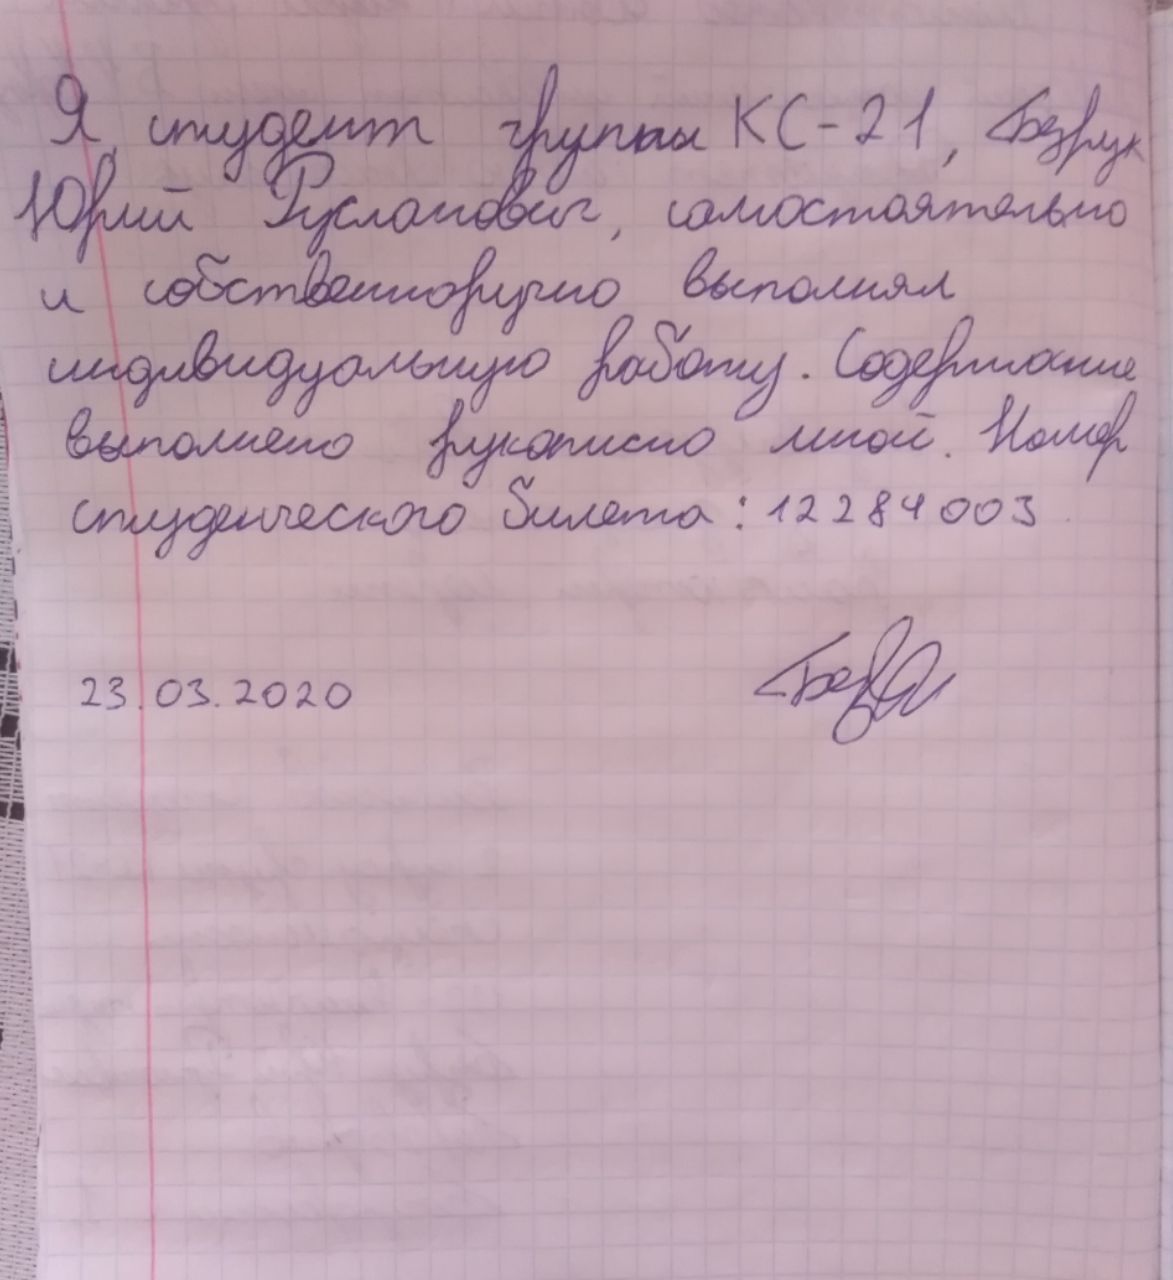 Я, студент группы КС-21, Безрук
Юрий Русланович, самостоятельно
и собственноручно выполнял
индивидуальную работу. Содержание
выполнено рукописно мной. Номер
студенческого билета: 12284003
23.03.2020